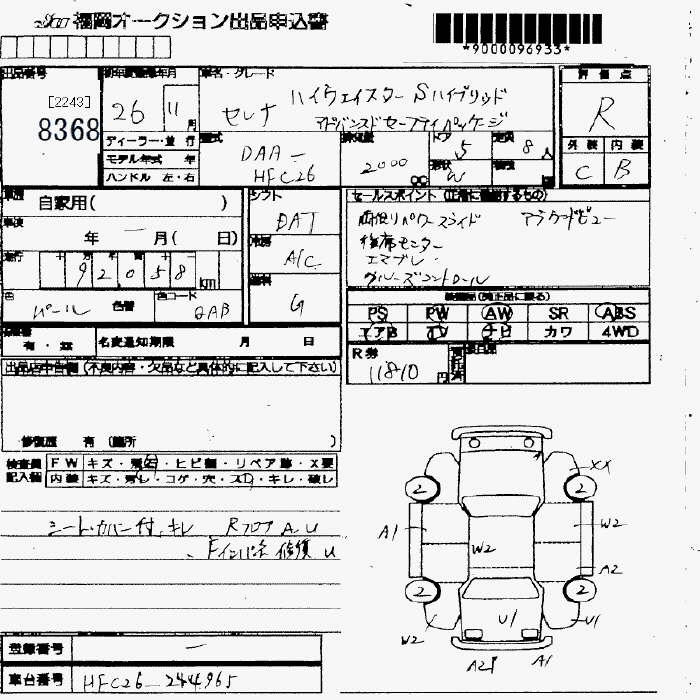 福岡オークション出品申込書
*9000096933*
出品番号
[2243]
8368
初年度登録年月
26 11 月
ディーラー・並 行
モデル年式 年
ハンドル 左・右
車名・グレード
セレナ ハイウェイスター Sハイブリッド
アドバンスドセーフティパッケージ
型式
DAA-
HFC26
排気量
2000
CC
ドア
5
形状
W
定員
8 人
評価点
R
外装 内装
C B
車歴
自家用( )
車検
年 - 月( 日)
走行
92058 km
色
パール
色替
色コード
QAB
シフト
DAT
冷房
A/C
燃料
G
セールスポイント (正確に記載するもの)
両側パワースライド アラウンドビュー
後席モニター
エマブレ.
クルーズコントロール
装備品(純正品に限る)
PS PW AW SR ABS
エアB TV ナビ カワ 4WD
有・無
名変通知期限 月 日
R券
11810 円
出品店申告欄(不良内容・欠品など具体的に記入して下さい)
修復歴 有 (箇所 )
検査員
記入欄
FW キズ・飛石・ヒビ割・リペア跡・X要
内装 キズ・汚レ・コゲ・穴・スレ・キレ・破レ
シートカバー付、キレ RフロアA、U
、Fインパネ 修負 U
XX
2
2
A1
W2
W2
A2
2
2
U1
U1
W2
A2
A1
登録番号 -
車台番号 HFC26-244965